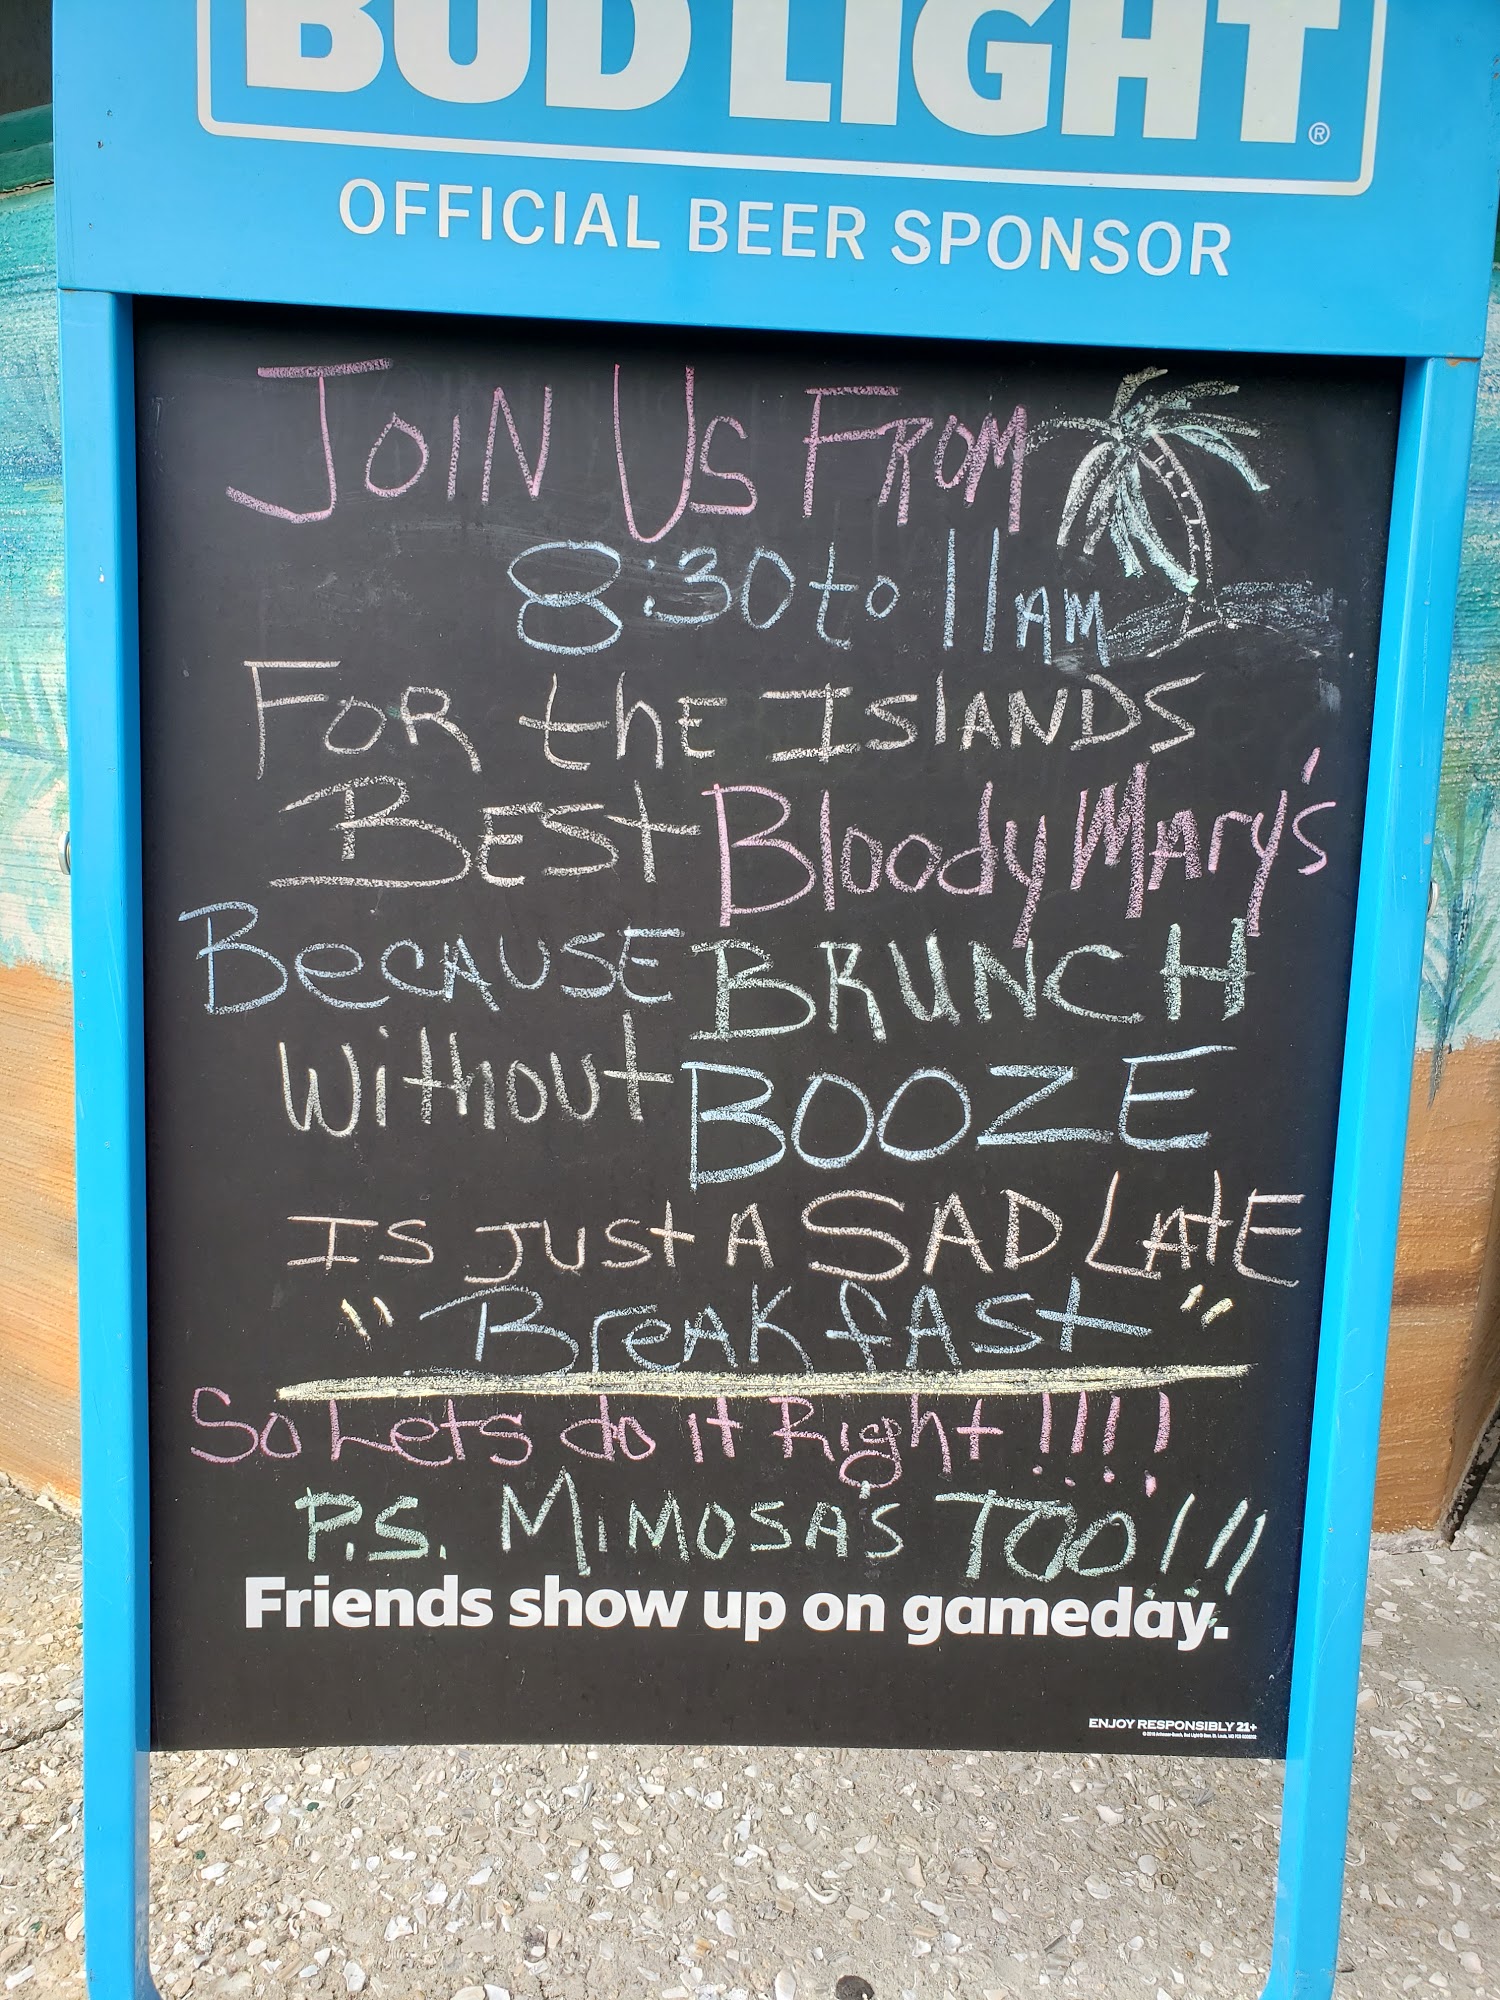 BUD LIGHT®
OFFICIAL BEER SPONSOR
JOIN US FROM
8:30 to 11AM
FOR the ISlANDS
BEST Bloody MAry's
BecAUSE BRUNCH
Without BOOZE
IS JUSt A SAD LAtE
"BreAKfASt"
So Lets do it Right!!!!
P.S. MiMOSA'S TOO!!!
Friends show up on gameday.
ENJOY RESPONSIBLY 21+